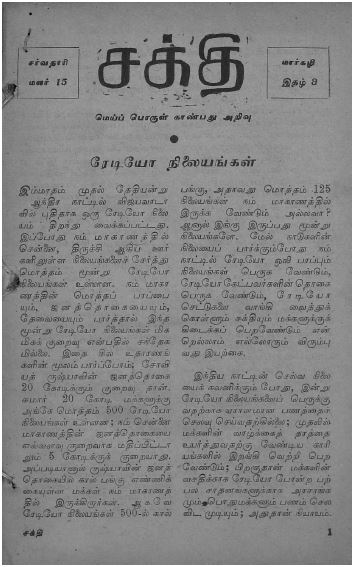 சர்வதாரி
மலர் 15
சக்தி
மார்கழி
இதழ் 3
மெய்ப் பொருள் காண்பது அறிவு
ரேடியோ நிலையங்கள்
இம்மாதம் முதல் தேதியன்று
ஆந்திர நாட்டில் விஜயவாடா
வில் புதிதாக ஒரு ரேடியோ நிலை
யம் திறந்து வைக்கப்பட்டது.
இப்போது நம் மாகாணத்தில்
சென்னை, திருச்சி ஆகிய ஊர்
களிலுள்ள நிலையங்களைச் சேர்த்து
மொத்தம் மூன்று ரேடியோ
நிலையங்கள் உள்ளன. நம் மாகா
ணத்தின் மொத்தப் பரப்பை
யும், ஜனத்தொகையையும்,
தேவையையும் பார்த்தால் இந்த
மூன்று ரேடியோ நிலையங்கள் மிக
மிகக் குறைவு என்பதில் சந்தேக
மில்லை. இதை சில உதாரணங்
களின் மூலம் பார்ப்போம்; சோவி
யத் ருஷ்யாவின் ஜனத்தொகை
20 கோடிக்கும் குறைவு தான்.
சுமார் 20 கோடி மக்களுக்கு
அங்கே மொத்தம் 500 ரேடியோ
நிலையங்கள் உள்ளன; நம் சென்னை
மாகாணத்தின் ஜனத்தொகையை
எவ்வளவு குறைவாக மதிப்பிட்டா
லும் 5 கோடிக்குக் குறையாது.
அப்படியானால் ருஷ்யாவின் ஜனத்
தொகையில் கால் பங்கு எண்ணிக்
கையுள்ள மக்கள் நம் மாகாணத்
தில் இருக்கிறார்கள். ஆகவே
ரேடியோ நிலையங்கள் 500-ல் கால்
பங்கு, அதாவது மொத்தம் 125
நிலையங்கள் நம் மாகாணத்தில்
இருக்க வேண்டும் அல்லவா?
ஆனால் இங்கு இருப்பது மூன்று
நிலையங்களே. மேல் நாடுகளின்
நிலையைப் பார்க்கும்போது நம்
நாட்டில் ரேடியோ ஒலி பரப்பும்
நிலையங்கள் பெருக வேண்டும்,
ரேடியோ கேட்பவர்களின் தொகை
பெருக வேண்டும், ரேடியோ
செட்டுகளை வாங்கி வைத்துக்
கொள்ளும் சக்தியும் மக்களுக்குக்
கிடைக்கப் பெறவேண்டும் என்
றெல்லாம் எல்லோரும் விரும்பு
வது இயற்கை.
இந்திய நாட்டின் செல்வ நிலை
யைக் கவனிக்கும் போது, இன்று
ரேடியோ நிலையங்களைப் பெருக்கு
வதற்காக ஏராளமான பணத்தைச்
செலவு செய்வதற்கில்லை; முதலில்
மக்களின் வாழ்க்கைத் தரத்தை
உயர்த்துவதற்கு வேண்டிய காரி
யங்களில் இறங்கி வெற்றி பெற
வேண்டும்; பிறகுதான் மக்களின்
வசதிக்காக ரேடியோ போன்ற பற்
பல சாதனங்களுக்காக அரசாங்க
மும் பொதுமக்களும் பணம் செல
விட முடியும்; அதுதான் நியாயம்.
சக்தி
1